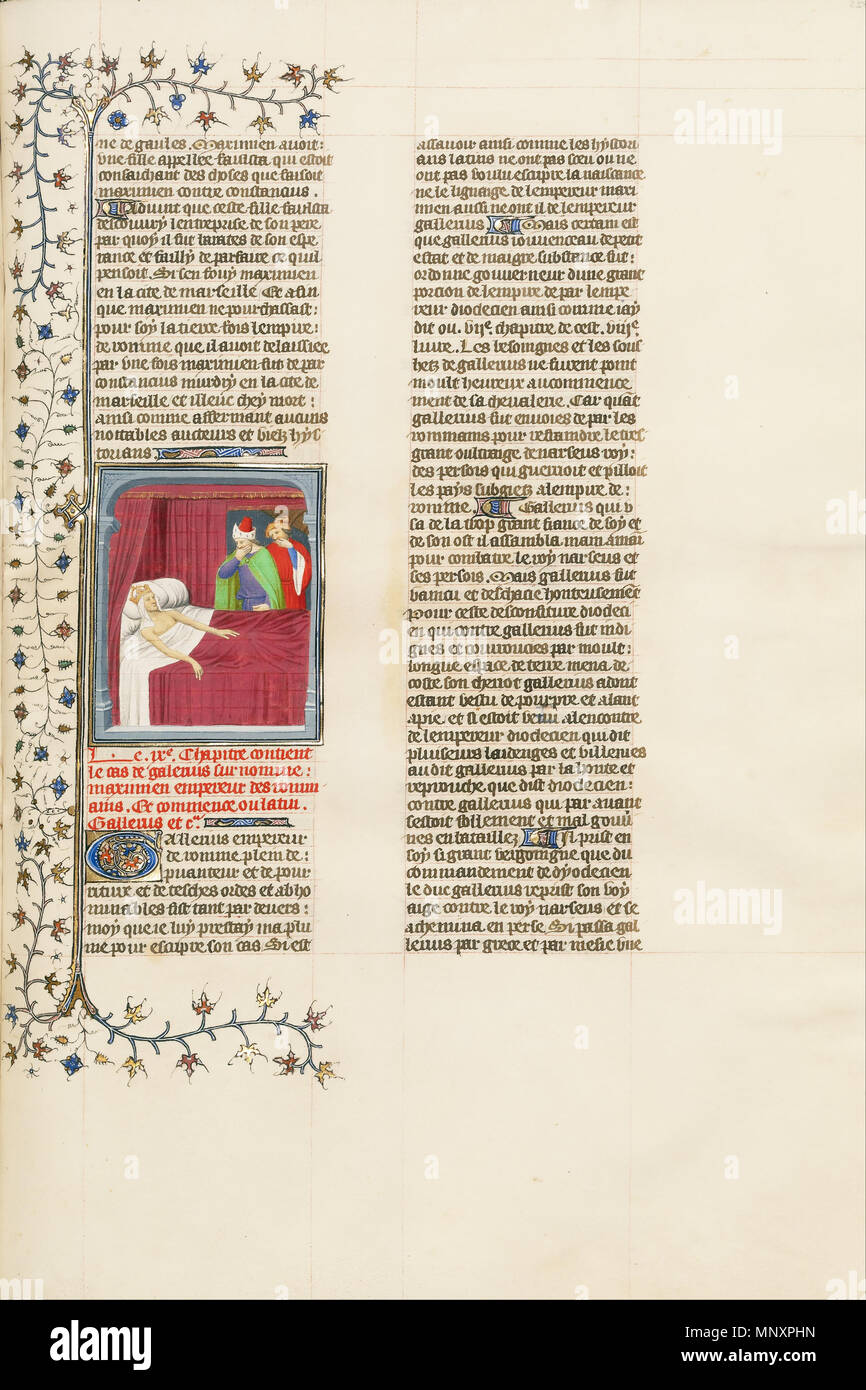 ne de gaules. Maximien avoit:
une fille appellee fausta qui estoit
consachant des choses que faisoit
maximien contre constancius.
Advint que ceste fille fausta
descouvry lentreprise de son pere
par quoy il fut tarates de son espe
rance et failly de parfaire ce quil
pensoit. Si sen fouy maximien
en la cite de marseille Et afin
que maximien ne pourchassast:
pour soy la tierce fois lempire:
de romme que il avoit delaissiee
par une fois maximien fut de par
constancius murdry en la cite de
marseille et illeuc chey mort:
ainsi comme afferment aucuns
nottables aucteurs et vielz hys
torians
Le .ixe. Chapitre contient
le cas de galerius surnomme:
maximien empereur des romm
ains. Et commence ou latin.
Gallerius et ca.
Gallerius empereur
de romme plein de:
puanteur et de pour
riture et de tesches ordes et abho
minables fist tant par devers:
moy que ie luy prestay ma plu
me pour escripre son cas. Si est
assavoir ainsi comme les hystori
ans latins ne ont pas sceu ou ne
ont pas voulu escripre la naissance
ne le lignaige de lempereur maxi
mien aussi ne ont il de lempereur
gallerius Mais certain est
que gallerius iouvenceau de petit
estat et de maigre substance fut:
ordonne gouverneur dune grant
porcion de lempire de par lempe
reur dioclecien ainsi comme iay
dit ou .viie. chapitre de cest .viije.
livre. Les besoingnes et les souf
hetz de gallerius ne furent point
moult heureux au commence
ment de sa chevalerie. Car quant
gallerius fut envoies de par les
rommains pour restraindre le tres
grant oultraige de narseus roy:
des persois qui guerrioit et pilloit
les pays subgietz a lempire de:
romme. Gallerius qui v
sa de la trop grant fiance de soy et
de son ost il assambla main a main
pour combatre le roy narseus et
ses persois. Mais gallerius fut
vaincu et deschacie honteusement
Pour ceste desconfiture diocleci
en qui contre gallerius fut indi
gnes et courroucies par moult:
longue espace de terre mena de
coste son cheriot gallerius adont
estant vestu de pourpre et alant
a pie. et si estoit venu a lencontre
de lempereur dioclecien qui dit
pluiseurs laidenges et villenies
au dit gallerius par la honte et
reprouche que dist dioclecien:
contre gallerius qui par avant
sestoit follement et mal gouv
nes en bataillez Il prist en
soy si grant vergoingne que du
commandement de dyoclecien
le duc gallerius reprist son voy
aige contre le roy narseus et se
achemina en perse. Si passa gal
lerius par grece et par mesie une
alamy
Image ID: MNXPHN
www.alamy.com